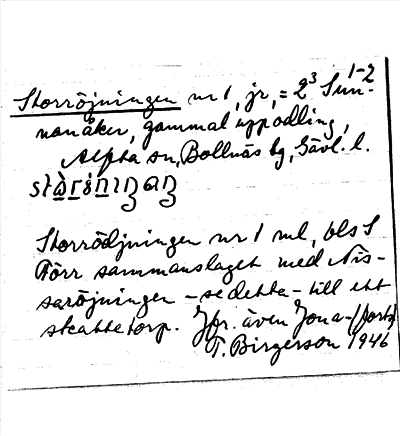 Storröjningen nr 1, jr, = 2³ Sun- 1-2
nanåker, gammal uppodling,
Alfta sn, Bollnäs tg, Gävl. l.
Storrödjningen nr 1 ml, bls S
Förr sammanslaget med Nis-
saröjningen - se detta - till ett
skattetorp. Jfr. även Jona- (forts)
T. Birgerson 1946